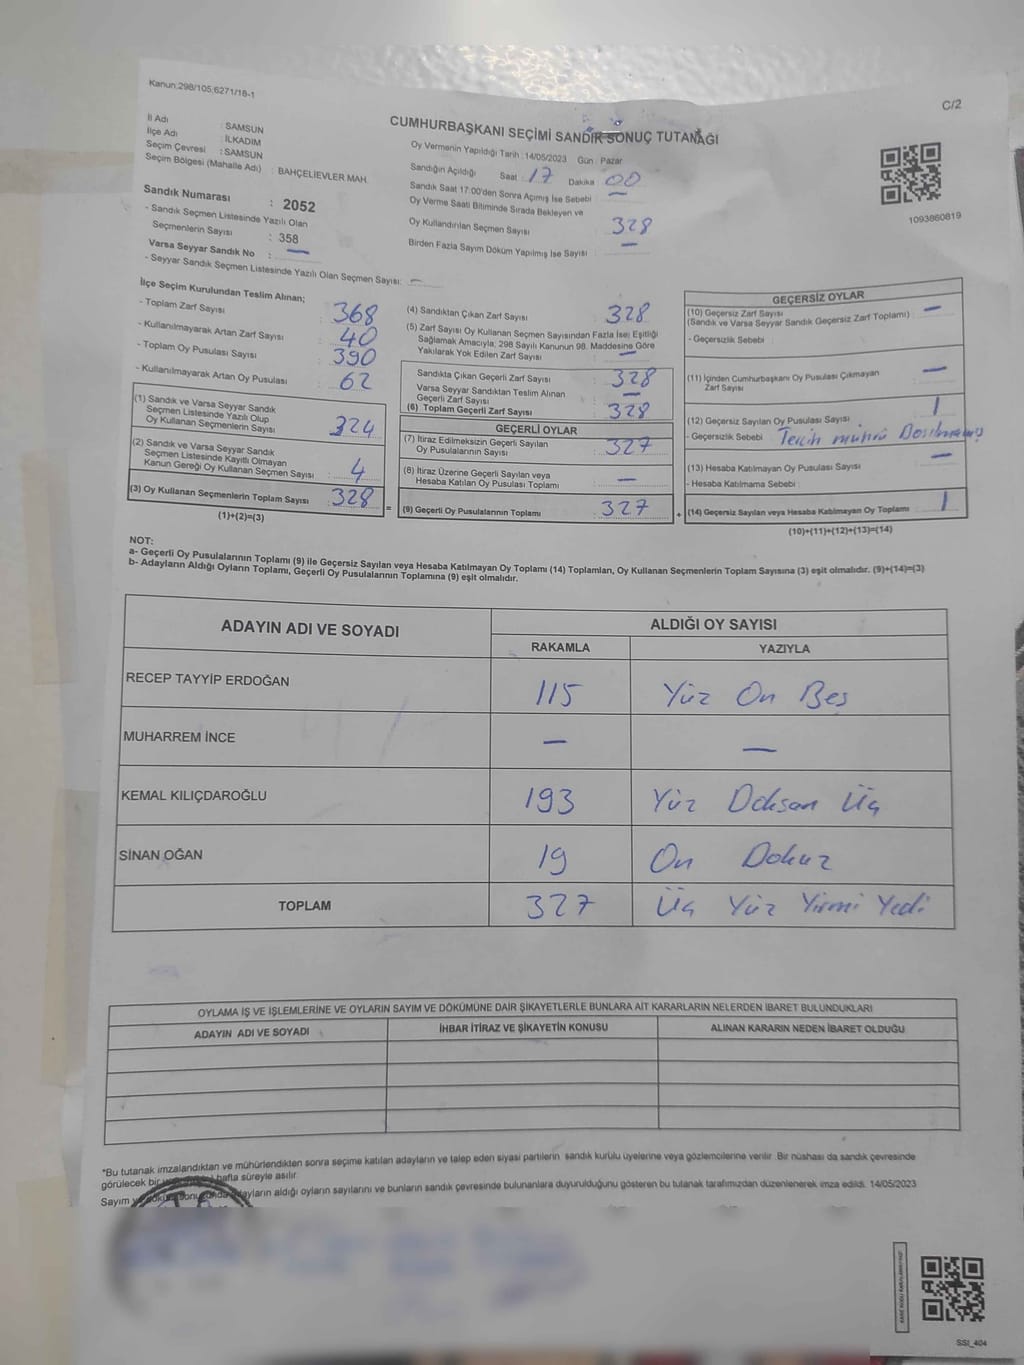 Kanun:298/105;6271/18-1
C/2
CUMHURBAŞKANI SEÇİMİ SANDIK SONUÇ TUTANAĞI
İl Adı : SAMSUN
İlçe Adı : İLKADIM
Seçim Çevresi : SAMSUN
Seçim Bölgesi (Mahalle Adı) : BAHÇELİEVLER MAH.
Sandık Numarası : 2052
- Sandık Seçmen Listesinde Yazılı Olan
Seçmenlerin Sayısı : 358
Varsa Seyyar Sandık No : —
- Seyyar Sandık Seçmen Listesinde Yazılı Olan Seçmen Sayısı: —
Oy Vermenin Yapıldığı Tarih :14/05/2023 Gün : Pazar
Sandığın Açıldığı Saat : 17 Dakika 00
Sandık Saat 17:00'den Sonra Açımış İse Sebebi : —
Oy Verme Saati Bitiminde Sırada Bekleyen ve
Oy Kullandırılan Seçmen Sayısı : 328
Birden Fazla Sayım Döküm Yapılmış İse Sayısı : —
1093860819
İlçe Seçim Kurulundan Teslim Alınan;
- Toplam Zarf Sayısı : 368
- Kullanılmayarak Artan Zarf Sayısı : 40
- Toplam Oy Pusulası Sayısı : 390
- Kullanılmayarak Artan Oy Pusulası : 62
(1) Sandık ve Varsa Seyyar Sandık
Seçmen Listesinde Yazılı Olup
Oy Kullanan Seçmenlerin Sayısı : 324
(2) Sandık ve Varsa Seyyar Sandık
Seçmen Listesinde Kayıtlı Olmayan
Kanun Gereği Oy Kullanan Seçmen Sayısı : 4
(3) Oy Kullanan Seçmenlerin Toplam Sayısı : 328
(1)+(2)=(3)
(4) Sandıktan Çıkan Zarf Sayısı : 328
(5) Zarf Sayısı Oy Kullanan Seçmen Sayısından Fazla İse; Eşitliği
Sağlamak Amacıyla; 298 Sayılı Kanunun 98. Maddesine Göre
Yakılarak Yok Edilen Zarf Sayısı : —
Sandıkta Çıkan Geçerli Zarf Sayısı : 328
Varsa Seyyar Sandıktan Teslim Alınan
Geçerli Zarf Sayısı : —
(6) Toplam Geçerli Zarf Sayısı : 328
GEÇERLİ OYLAR
(7) İtiraz Edilmeksizin Geçerli Sayılan
Oy Pusulalarının Sayısı : 327
(8) İtiraz Üzerine Geçerli Sayılan veya
Hesaba Katılan Oy Pusulası Toplamı : —
= (9) Geçerli Oy Pusulalarının Toplamı : 327
GEÇERSİZ OYLAR
(10) Geçersiz Zarf Sayısı : —
(Sandık ve Varsa Seyyar Sandık Geçersiz Zarf Toplamı)
- Geçersizlik Sebebi :
(11) İçinden Cumhurbaşkanı Oy Pusulası Çıkmayan
Zarf Sayısı : —
(12) Geçersiz Sayılan Oy Pusulası Sayısı : 1
- Geçersizlik Sebebi : Tercih mührü Basılmamış
(13) Hesaba Katılmayan Oy Pusulası Sayısı : —
- Hesaba Katılmama Sebebi :
+ (14) Geçersiz Sayılan veya Hesaba Katılmayan Oy Toplamı : 1
(10)+(11)+(12)+(13)=(14)
NOT:
a- Geçerli Oy Pusulalarının Toplamı (9) ile Geçersiz Sayılan veya Hesaba Katılmayan Oy Toplamı (14) Toplamları, Oy Kullanan Seçmenlerin Toplam Sayısına (3) eşit olmalıdır. (9)+(14)=(3)
b- Adayların Aldığı Oyların Toplamı, Geçerli Oy Pusulalarının Toplamına (9) eşit olmalıdır.
ADAYIN ADI VE SOYADI ALDIĞI OY SAYISI
RAKAMLA YAZIYLA
RECEP TAYYİP ERDOĞAN 115 Yüz On Beş
MUHARREM İNCE — —
KEMAL KILIÇDAROĞLU 193 Yüz Doksan Üç
SİNAN OĞAN 19 On Dokuz
TOPLAM 327 Üç Yüz Yirmi Yedi
OYLAMA İŞ VE İŞLEMLERİNE VE OYLARIN SAYIM VE DÖKÜMÜNE DAİR ŞİKAYETLERLE BUNLARA AİT KARARLARIN NELERDEN İBARET BULUNDUKLARI
ADAYIN ADI VE SOYADI İHBAR İTİRAZ VE ŞİKAYETİN KONUSU ALINAN KARARIN NEDEN İBARET OLDUĞU
*Bu tutanak imzalandıktan ve mühürlendikten sonra seçime katılan adayların ve talep eden siyasi partilerin sandık kurulu üyelerine veya gözlemcilerine verilir. Bir nüshası da sandık çevresinde
görülecek bir hafta süreyle asılır.
Sayım ve adayların aldığı oyların sayılarını ve bunların sandık çevresinde bulunanlara duyurulduğunu gösteren bu tutanak tarafımızdan düzenlenerek imza edildi. 14/05/2023
SSI_404